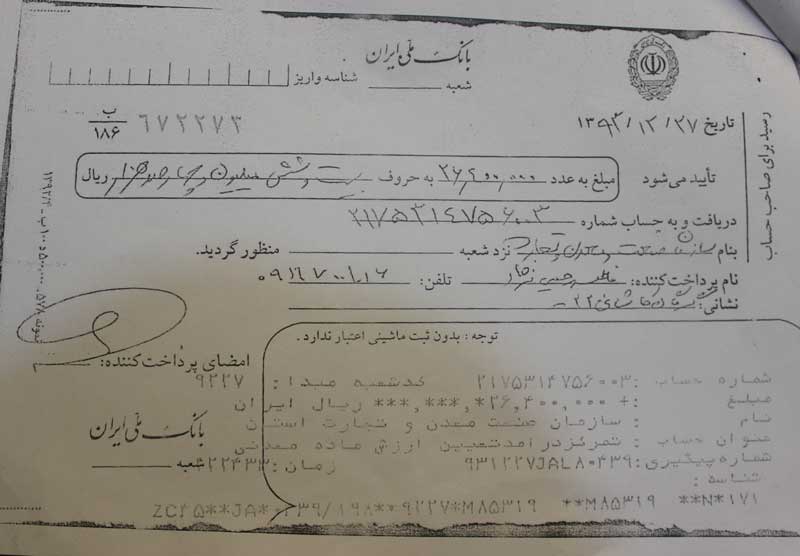 بانک ملی ایران
شعبه
شناسه واریز
تاریخ ۱۳۹۳/۱۲/۲۷
۶۷۲۲۷۳ ب ۱۸۶
تأیید می‌شود مبلغ به عدد ۲۶,۴۰۰,۰۰۰ به حروف بیست و شش میلیون و چهارصد هزار ریال
دریافت و به حساب شماره ۲۱۷۵۳۱۴۷۵۶۰۰۳
بنام سازمان صنعت معدن و تجارت نزد شعبه منظور گردید.
نام پرداخت‌کننده: تلفن:
نشانی:
توجه : بدون ثبت ماشینی اعتبار ندارد.
امضای پرداخت‌کننده:
شماره حساب :۲۱۷۵۳۱۴۷۵۶۰۰۳ کدشعبه مبدا: ۹۲۲۷
مبلغ :+ ۲۶,۴۰۰,۰۰۰*,***,*** ریال ایران
نام : سازمان صنعت معدن و تجارت استان
عنوان حساب : تمرکزدرامدتعیین ارزش ماده معدنی
شماره پیگیری:۹۳۱۲۲۷JAL۸۰۴۳۹ زمان:
شناسه :
**M۸۵۳۱۹ **N*۱۷۱
بانک ملی ایران
شعبه
رسید برای صاحب حساب